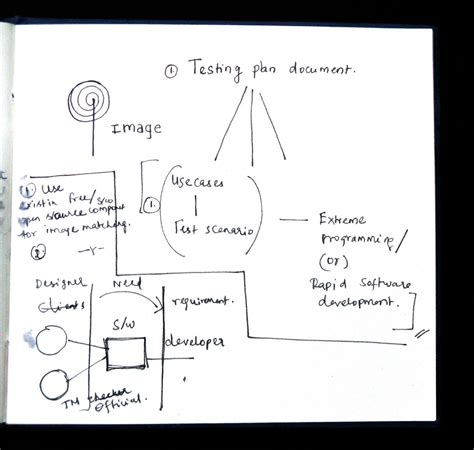 ① Testing plan document.
Image
① Use
existin free/s/w
open source
for image matching.
②
①.
Usecases
Test scenario
Extreme
programming/
(or)
Rapid Software
development.
Designer
Clients
Need
requirement.
S/W
developer
TM checker
Official.